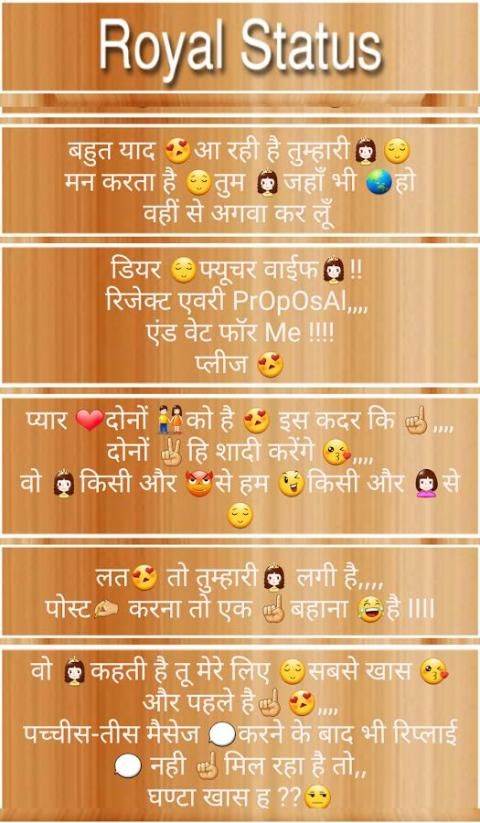 Royal Status
बहुत याद 😍आ रही है तुम्हारी👸😌
मन करता है 😌तुम 👸जहाँ भी 🌏हो
वहीं से अगवा कर लूँ
डियर 😌फ्यूचर वाईफ👸!!
रिजेक्ट एवरी PrOpOsAl,,,,
एंड वेट फॉर Me !!!!
प्लीज 😍
प्यार ❤दोनों 👫को है 😍 इस कदर कि ☝,,,,
दोनों ✌हि शादी करेंगे 😘,,,,
वो 👸किसी और 😈से हम 😉किसी और 🙎से
😌
लत😍 तो तुम्हारी👸 लगी है,,,,
पोस्ट✍ करना तो एक ☝बहाना 😂है llll
वो 👸कहती है तू मेरे लिए 😌सबसे खास 😘
और पहले है☝😍,,,,
पच्चीस-तीस मैसेज 💬करने के बाद भी रिप्लाई
💬 नही ☝मिल रहा है तो,,
घण्टा खास ह ??😒